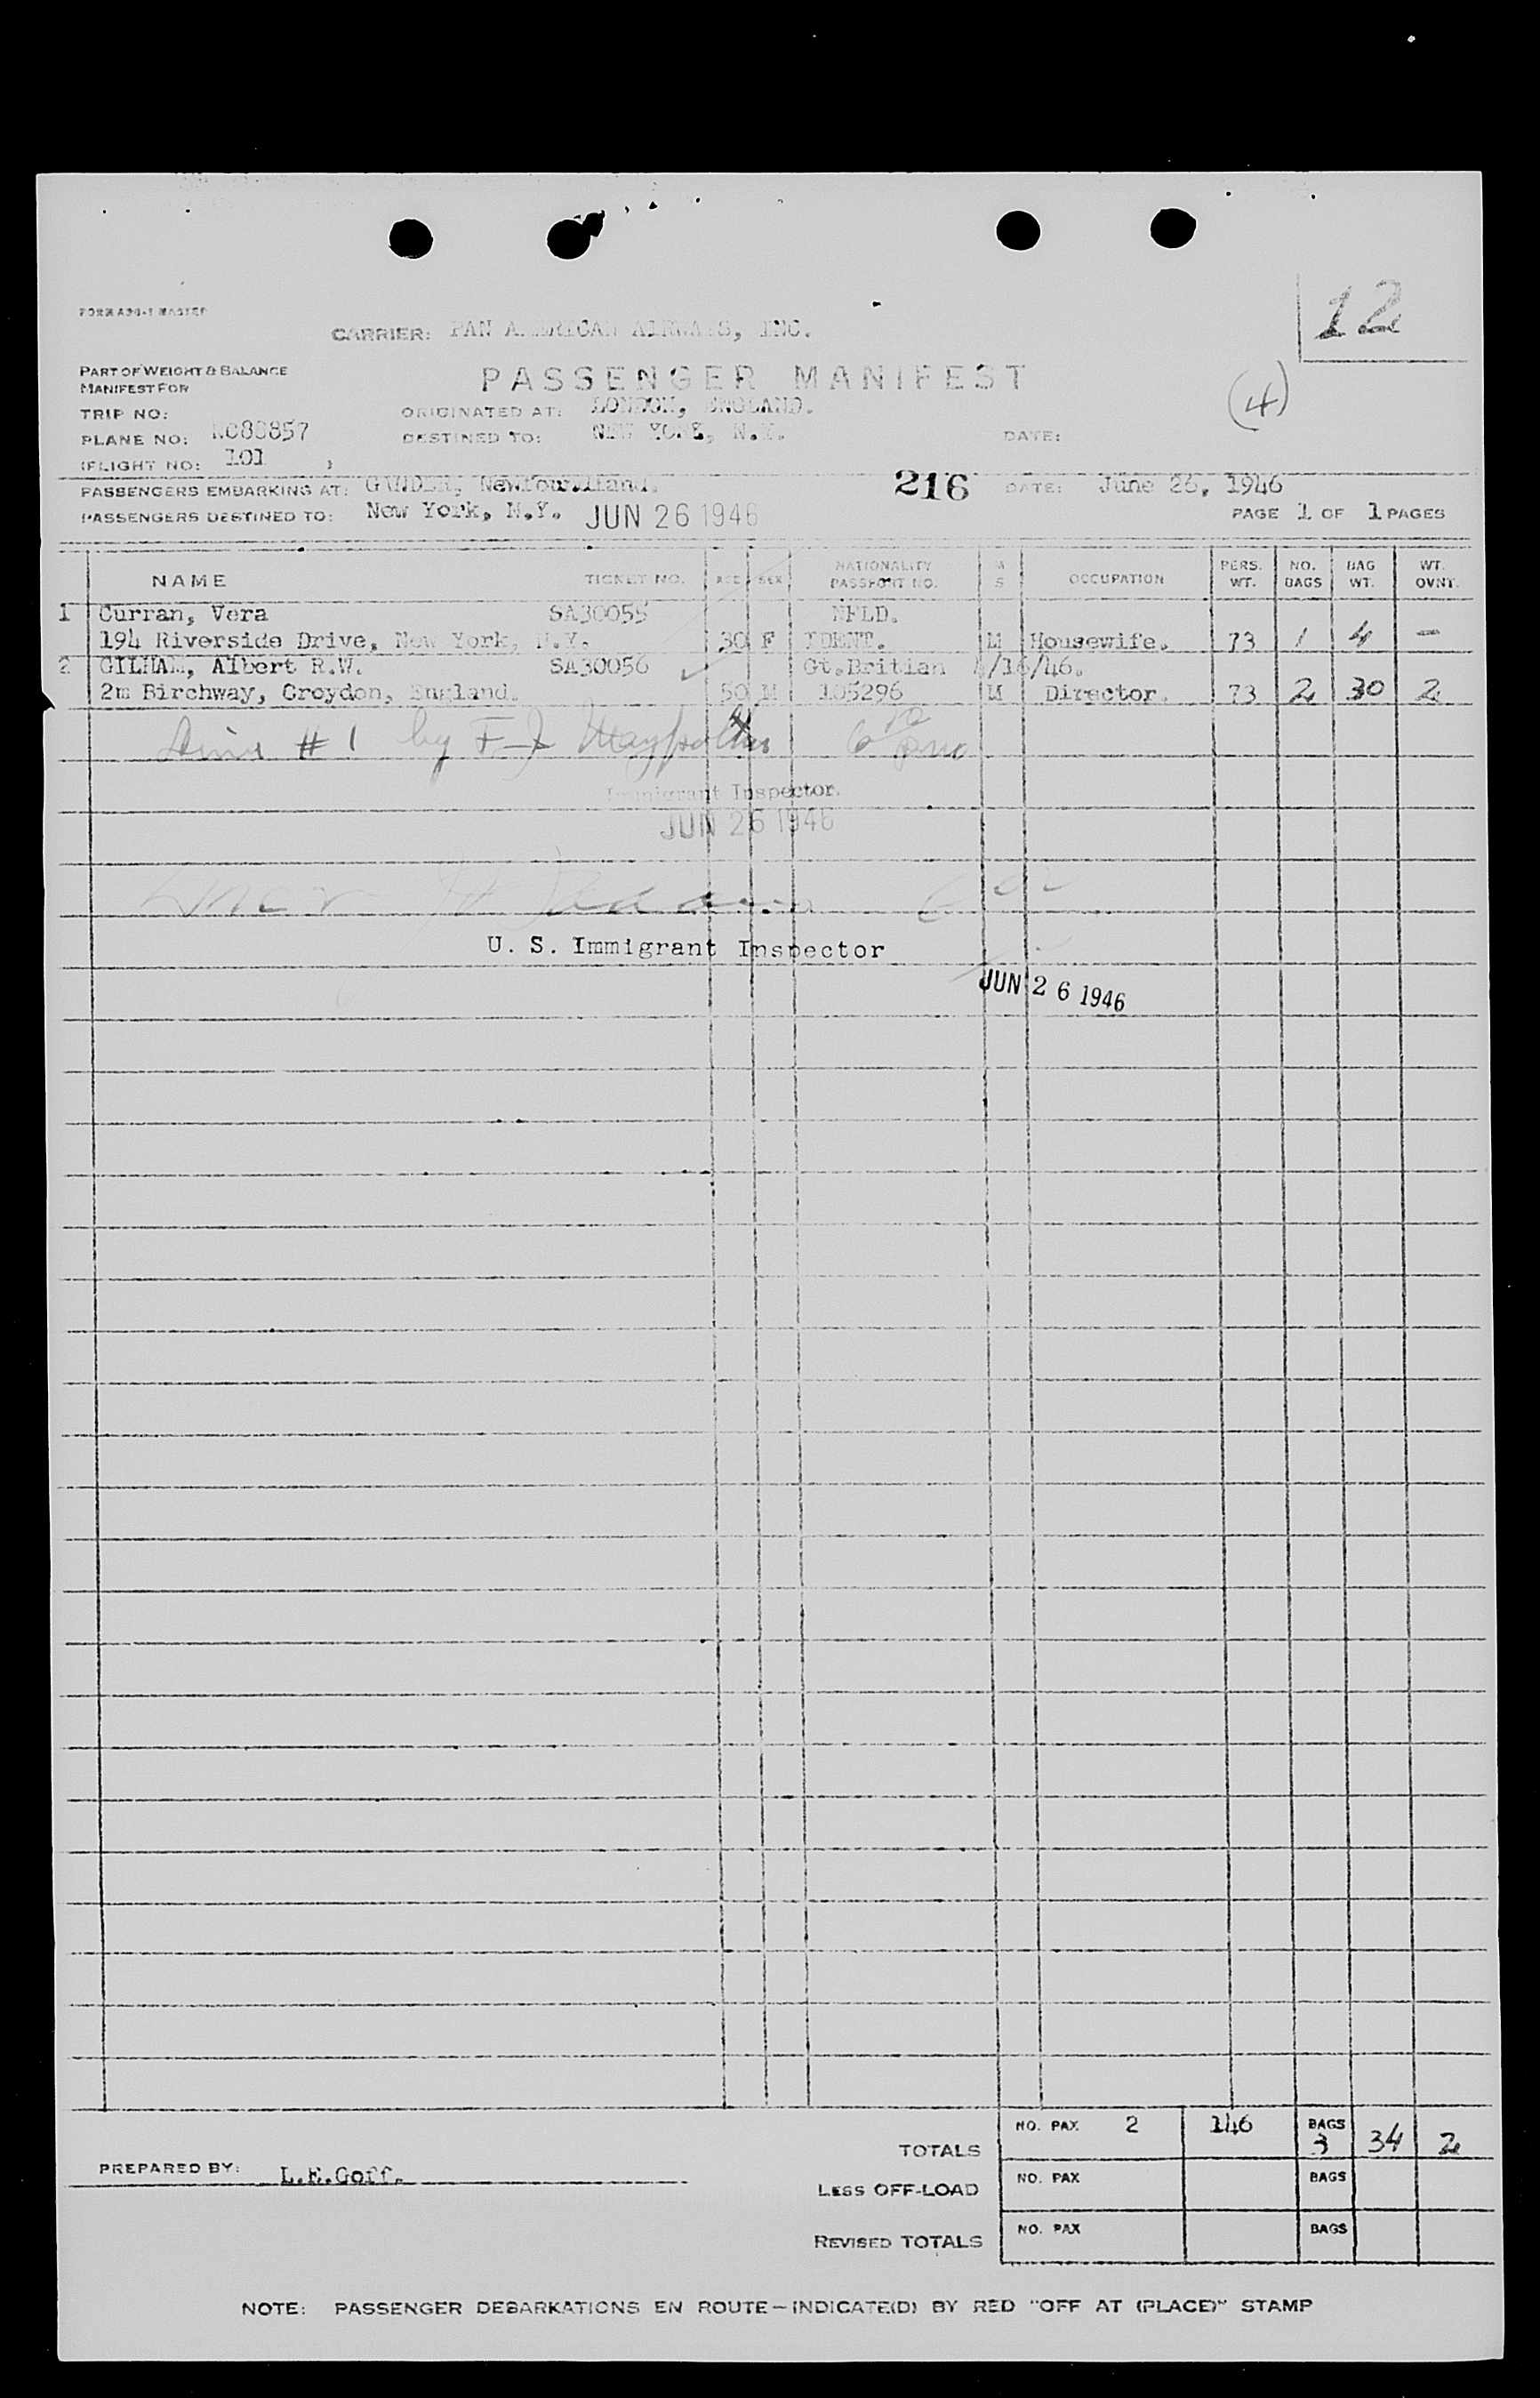 FORM A30-1 MASTER
12
CARRIER: PAN AMERICAN AIRWAYS, INC.
PART OF WEIGHT & BALANCE
MANIFEST FOR
PASSENGER MANIFEST
(4)
TRIP NO:
ORIGINATED AT: LONDON, ENGLAND.
PLANE NO: NC88857
DESTINED TO: NEW YORK, N.Y.
DATE:
(FLIGHT NO: 101 )
PASSENGERS EMBARKING AT: GANDER, Newfoundland.
216
DATE: June 26, 1946
PASSENGERS DESTINED TO: New York, N.Y. JUN 26 1946
PAGE 1 OF 1 PAGES
NAME TICKET NO. AGE SEX NATIONALITY PASSPORT NO. M S OCCUPATION PERS. WT. NO. BAGS BAG WT. WT. OVNT.
1 Curran, Vera SA30055 NFLD.
194 Riverside Drive, New York, N.Y. 30 F IDENT. M Housewife. 73 1 4 —
2 GILHAM, Albert R.W. SA30056 Gt.Britian 4/16/46.
2m Birchway, Croydon, England. 50 M 105296 M Director. 73 2 30 2
# 1 by F J
Immigrant Inspector.
JUN 26 1946
U. S. Immigrant Inspector
JUN 26 1946
TOTALS NO. PAX 2 146 BAGS 3 34 2
PREPARED BY: L.E.Goff.
LESS OFF-LOAD NO. PAX BAGS
REVISED TOTALS NO. PAX BAGS
NOTE: PASSENGER DEBARKATIONS EN ROUTE—INDICATE(D) BY RED "OFF AT (PLACE)" STAMP